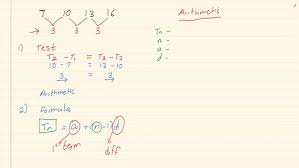 7 10 13 16
→ 3 3 3
1) Test
T₂ - T₁ = T₃ - T₂
10 - 7 = 13 - 10
3 = 3
Arithmetic
2) Formula
Tn = a + (n-1)d
1st term
diff
Arithmetic
Tn -
n -
a -
d -